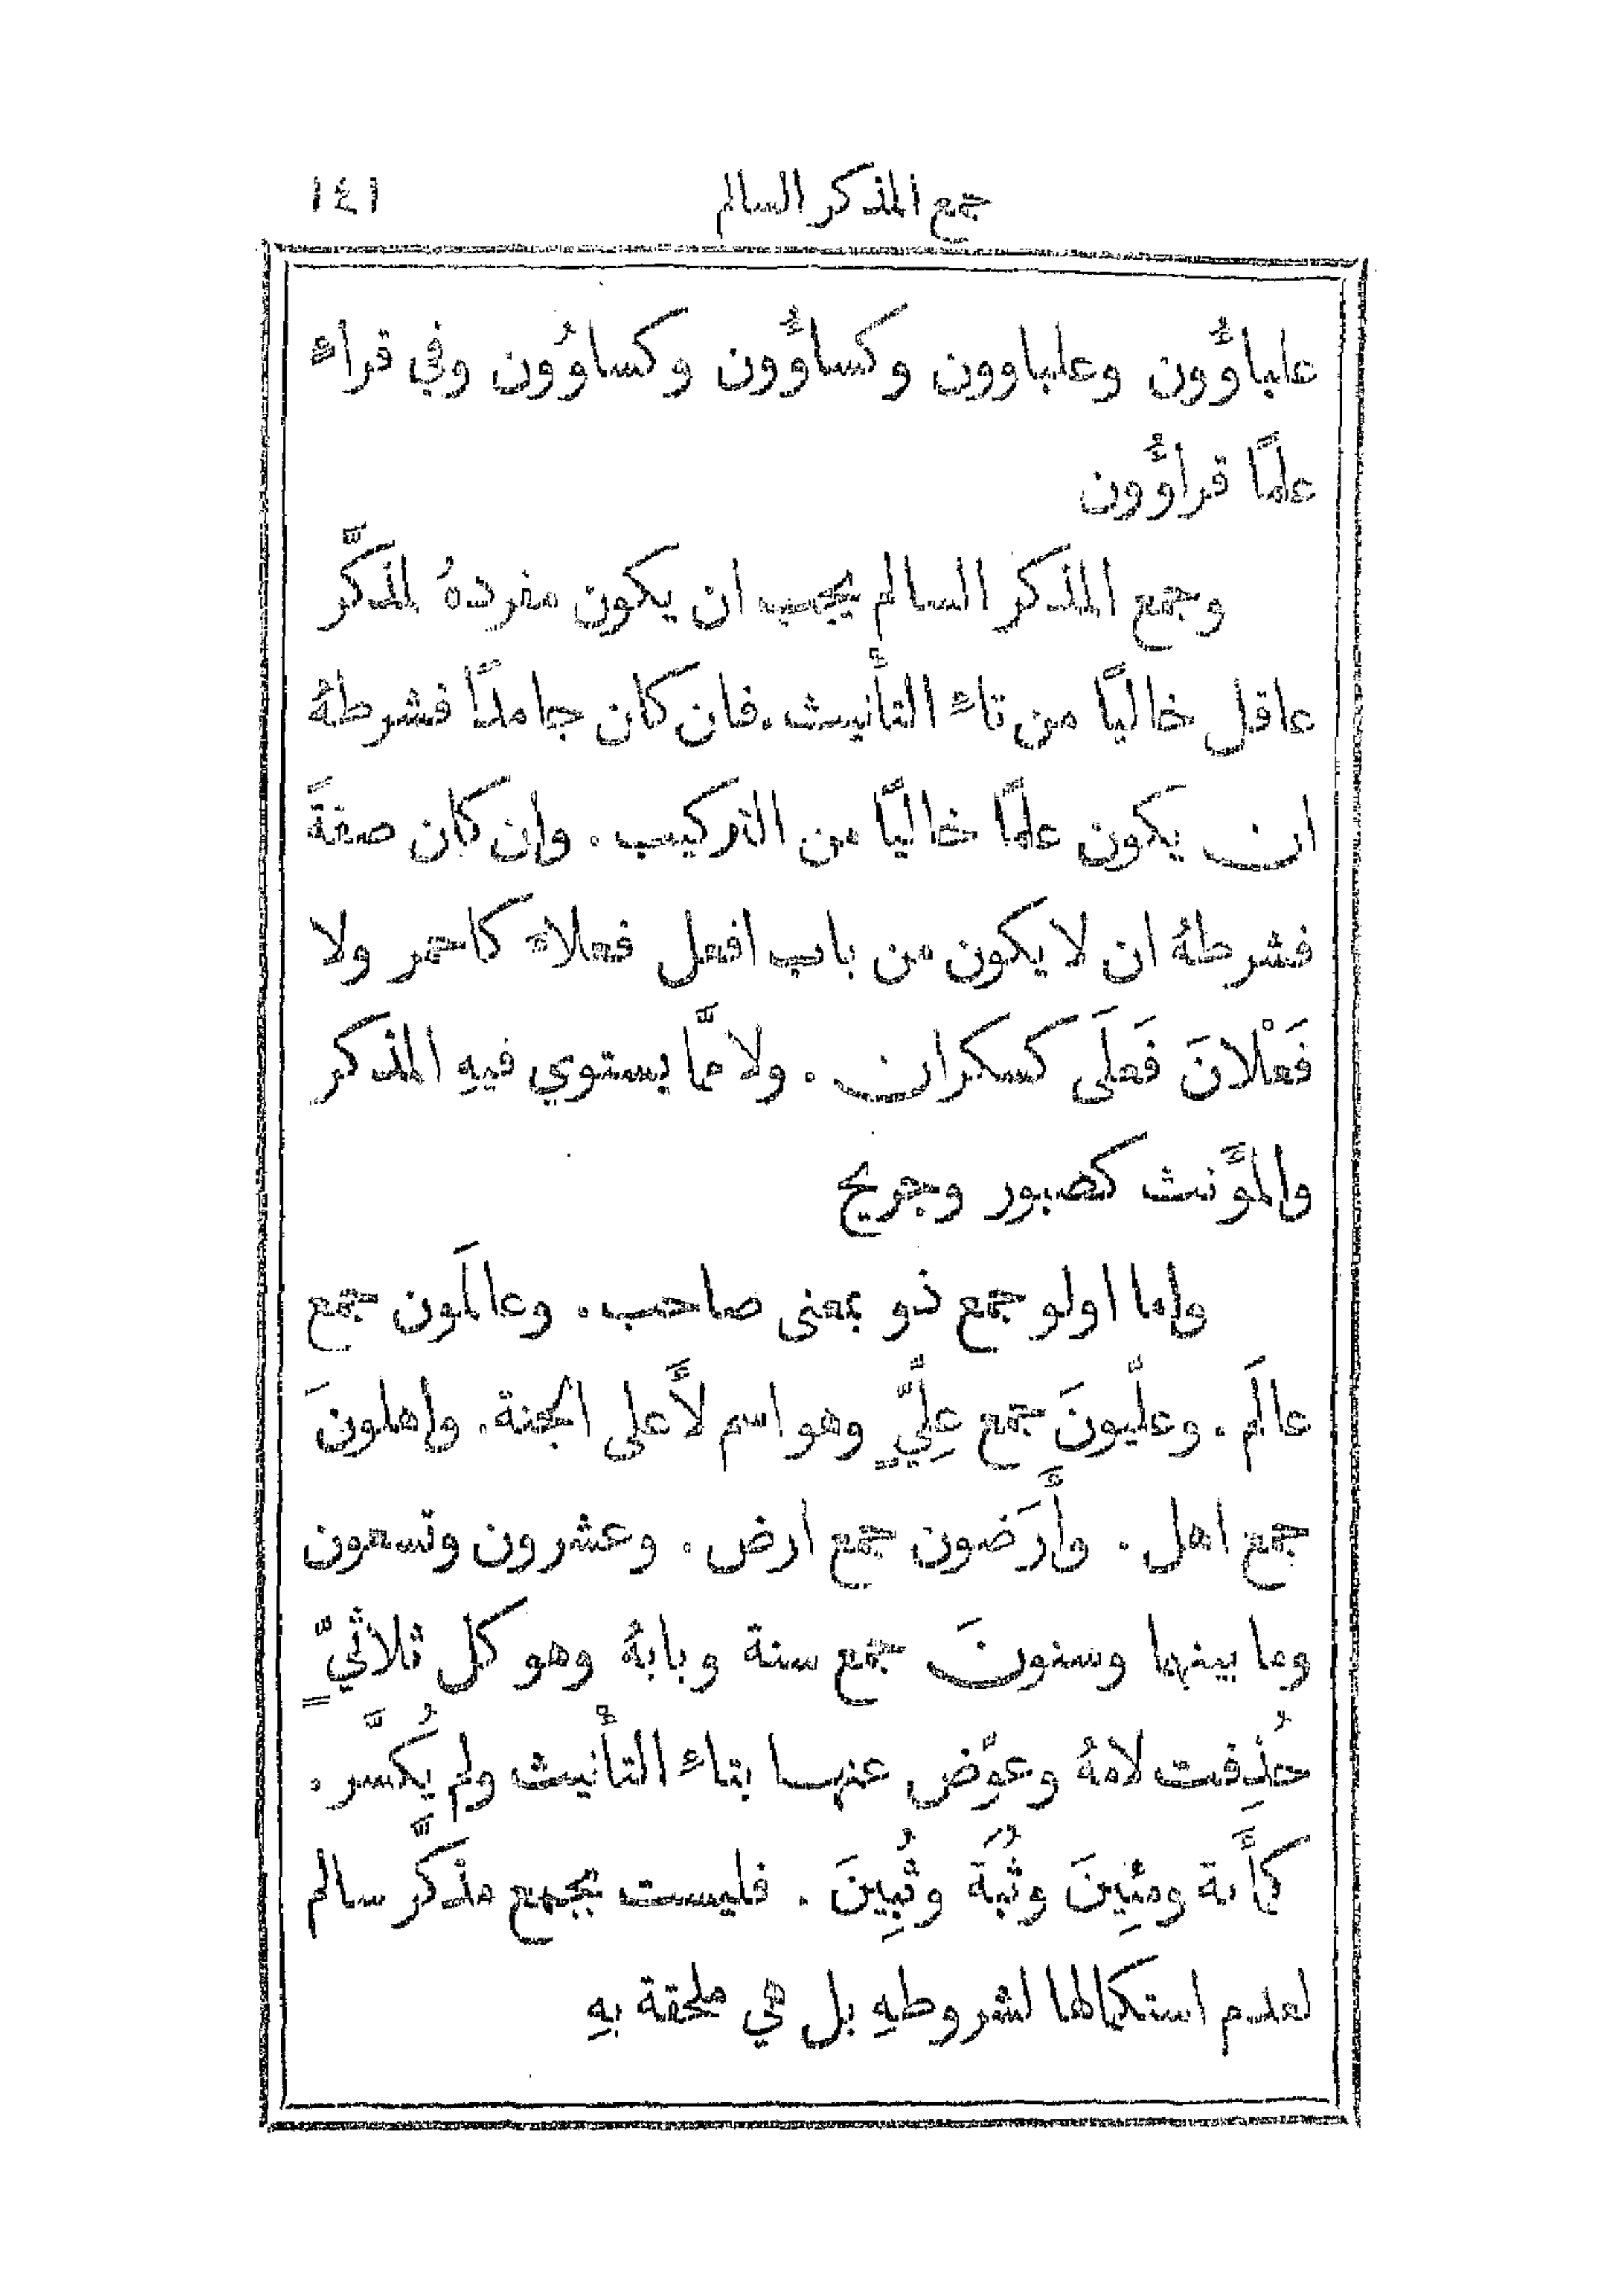 جمع المذكر السالم ١٤١
علباؤُون وعلباوون وكساؤُون وكساوُون وفي قراء
علمًا قراؤُون
وجمع المذكر السالم يجب ان يكون مفردهُ لمذكَّر
عاقل خاليًا من تاء التأنيث . فان كان جامدًا فشرطهُ
ان يكون علمًا خاليًا من التركيب . وان كان صفةً
فشرطهُ ان لا يكون من باب افعل فعلاء كاحمر ولا
فَعْلانَ فَعلَى كسكران . ولا ممَّا يستوي فيهِ المذكر
والمؤَنث كصبور وجريح
واما اولو جمع ذو بمعنى صاحب . وعالَمون جمع
عالَم . وعلّيونَ جمع عِلِّيٍّ وهو اسم لأَعلى الجنة . واهلونَ
جمع اهل . وأَرَضون جمع ارض . وعشرون وتسعون
وما بينهما وسنونَ جمع سنة وبابهُ وهو كل ثلاثيٍّ
حُذِفت لامهُ وعوِّض عنها بتاء التأنيث ولم يُكسَّر .
كمأَئة ومئِينَ وثُبةٌ وثُبِينَ . فليست بجمع مذكَّر سالم
لعدم استكمالها لشروطهِ بل هي ملحقة بهِ